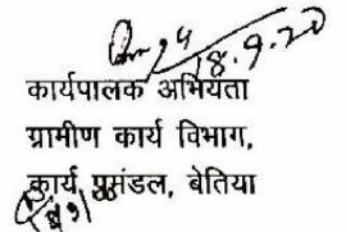 18.9.20
कार्यपालक अभियंता
ग्रामीण कार्य विभाग,
कार्य प्रमंडल, बेतिया